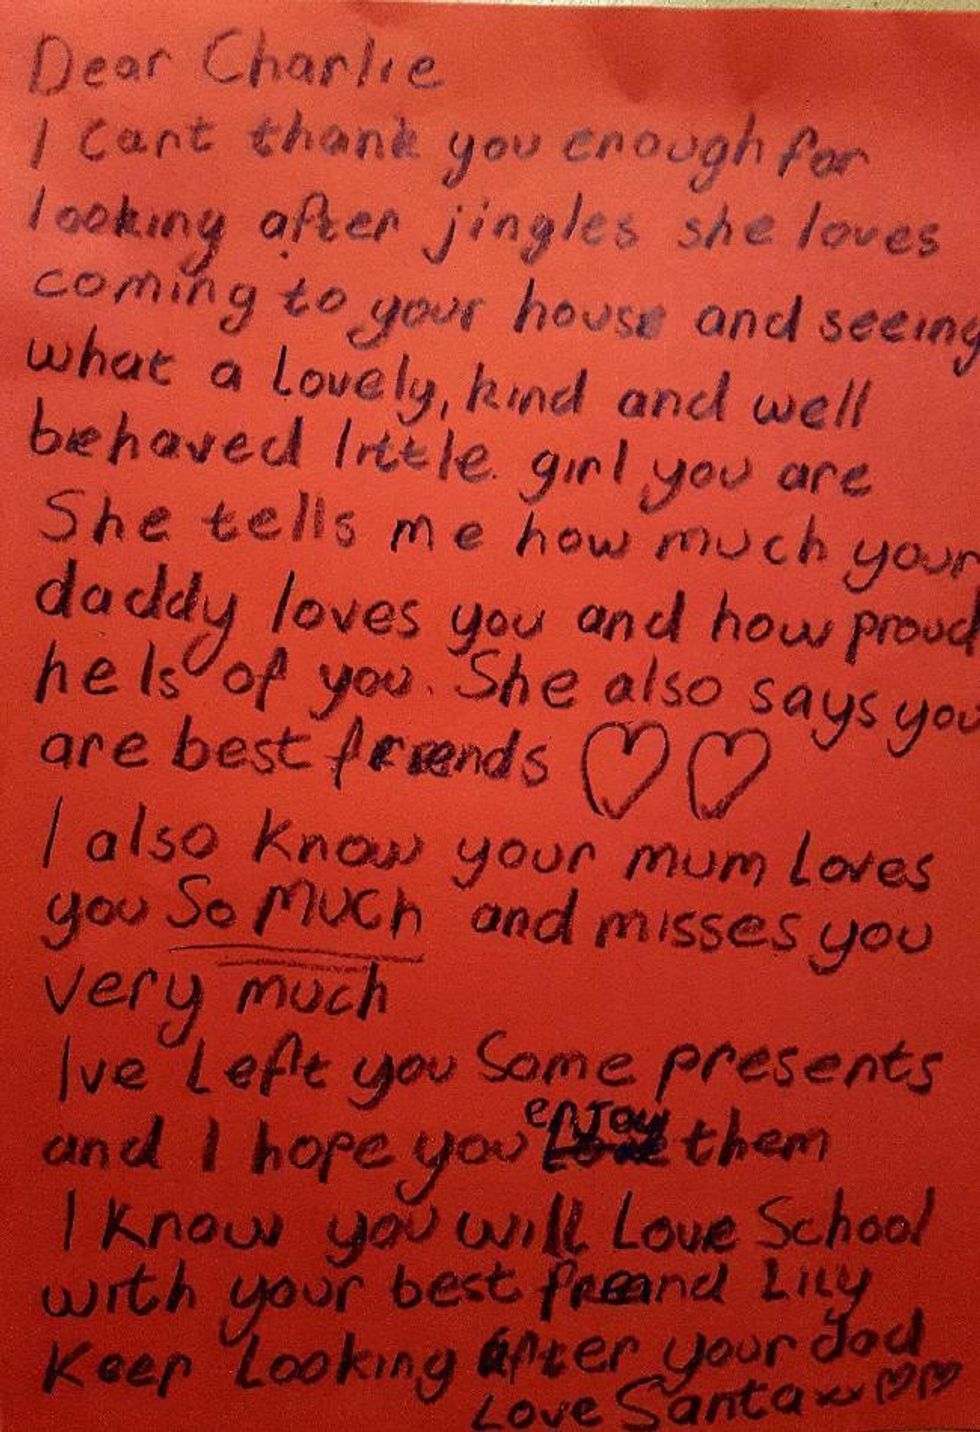 Dear Charlie
I Cant thank you enough for
looking after jingles she loves
coming to your house and seeing
what a Lovely, kind and well
behaved little girl you are
She tells me how much your
daddy loves you and how proud
he Is of you. She also says you
are best friends ♡♡
I also know your mum Loves
you So Much and misses you
very much
Ive Left you Some presents
and I hope you enjoy them
I Know you will Love School
with your best freand Lily
Keep Looking After your dad
Love Santa xx ♡♡